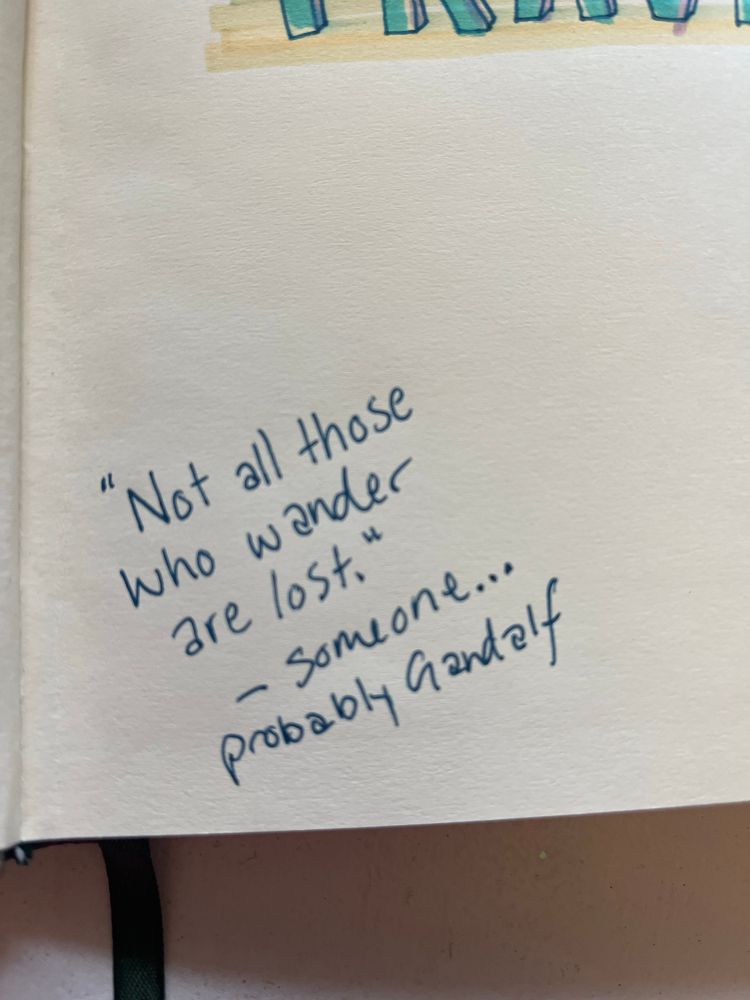 "Not all those
who wander
are lost."
- someone...
probably Gandalf